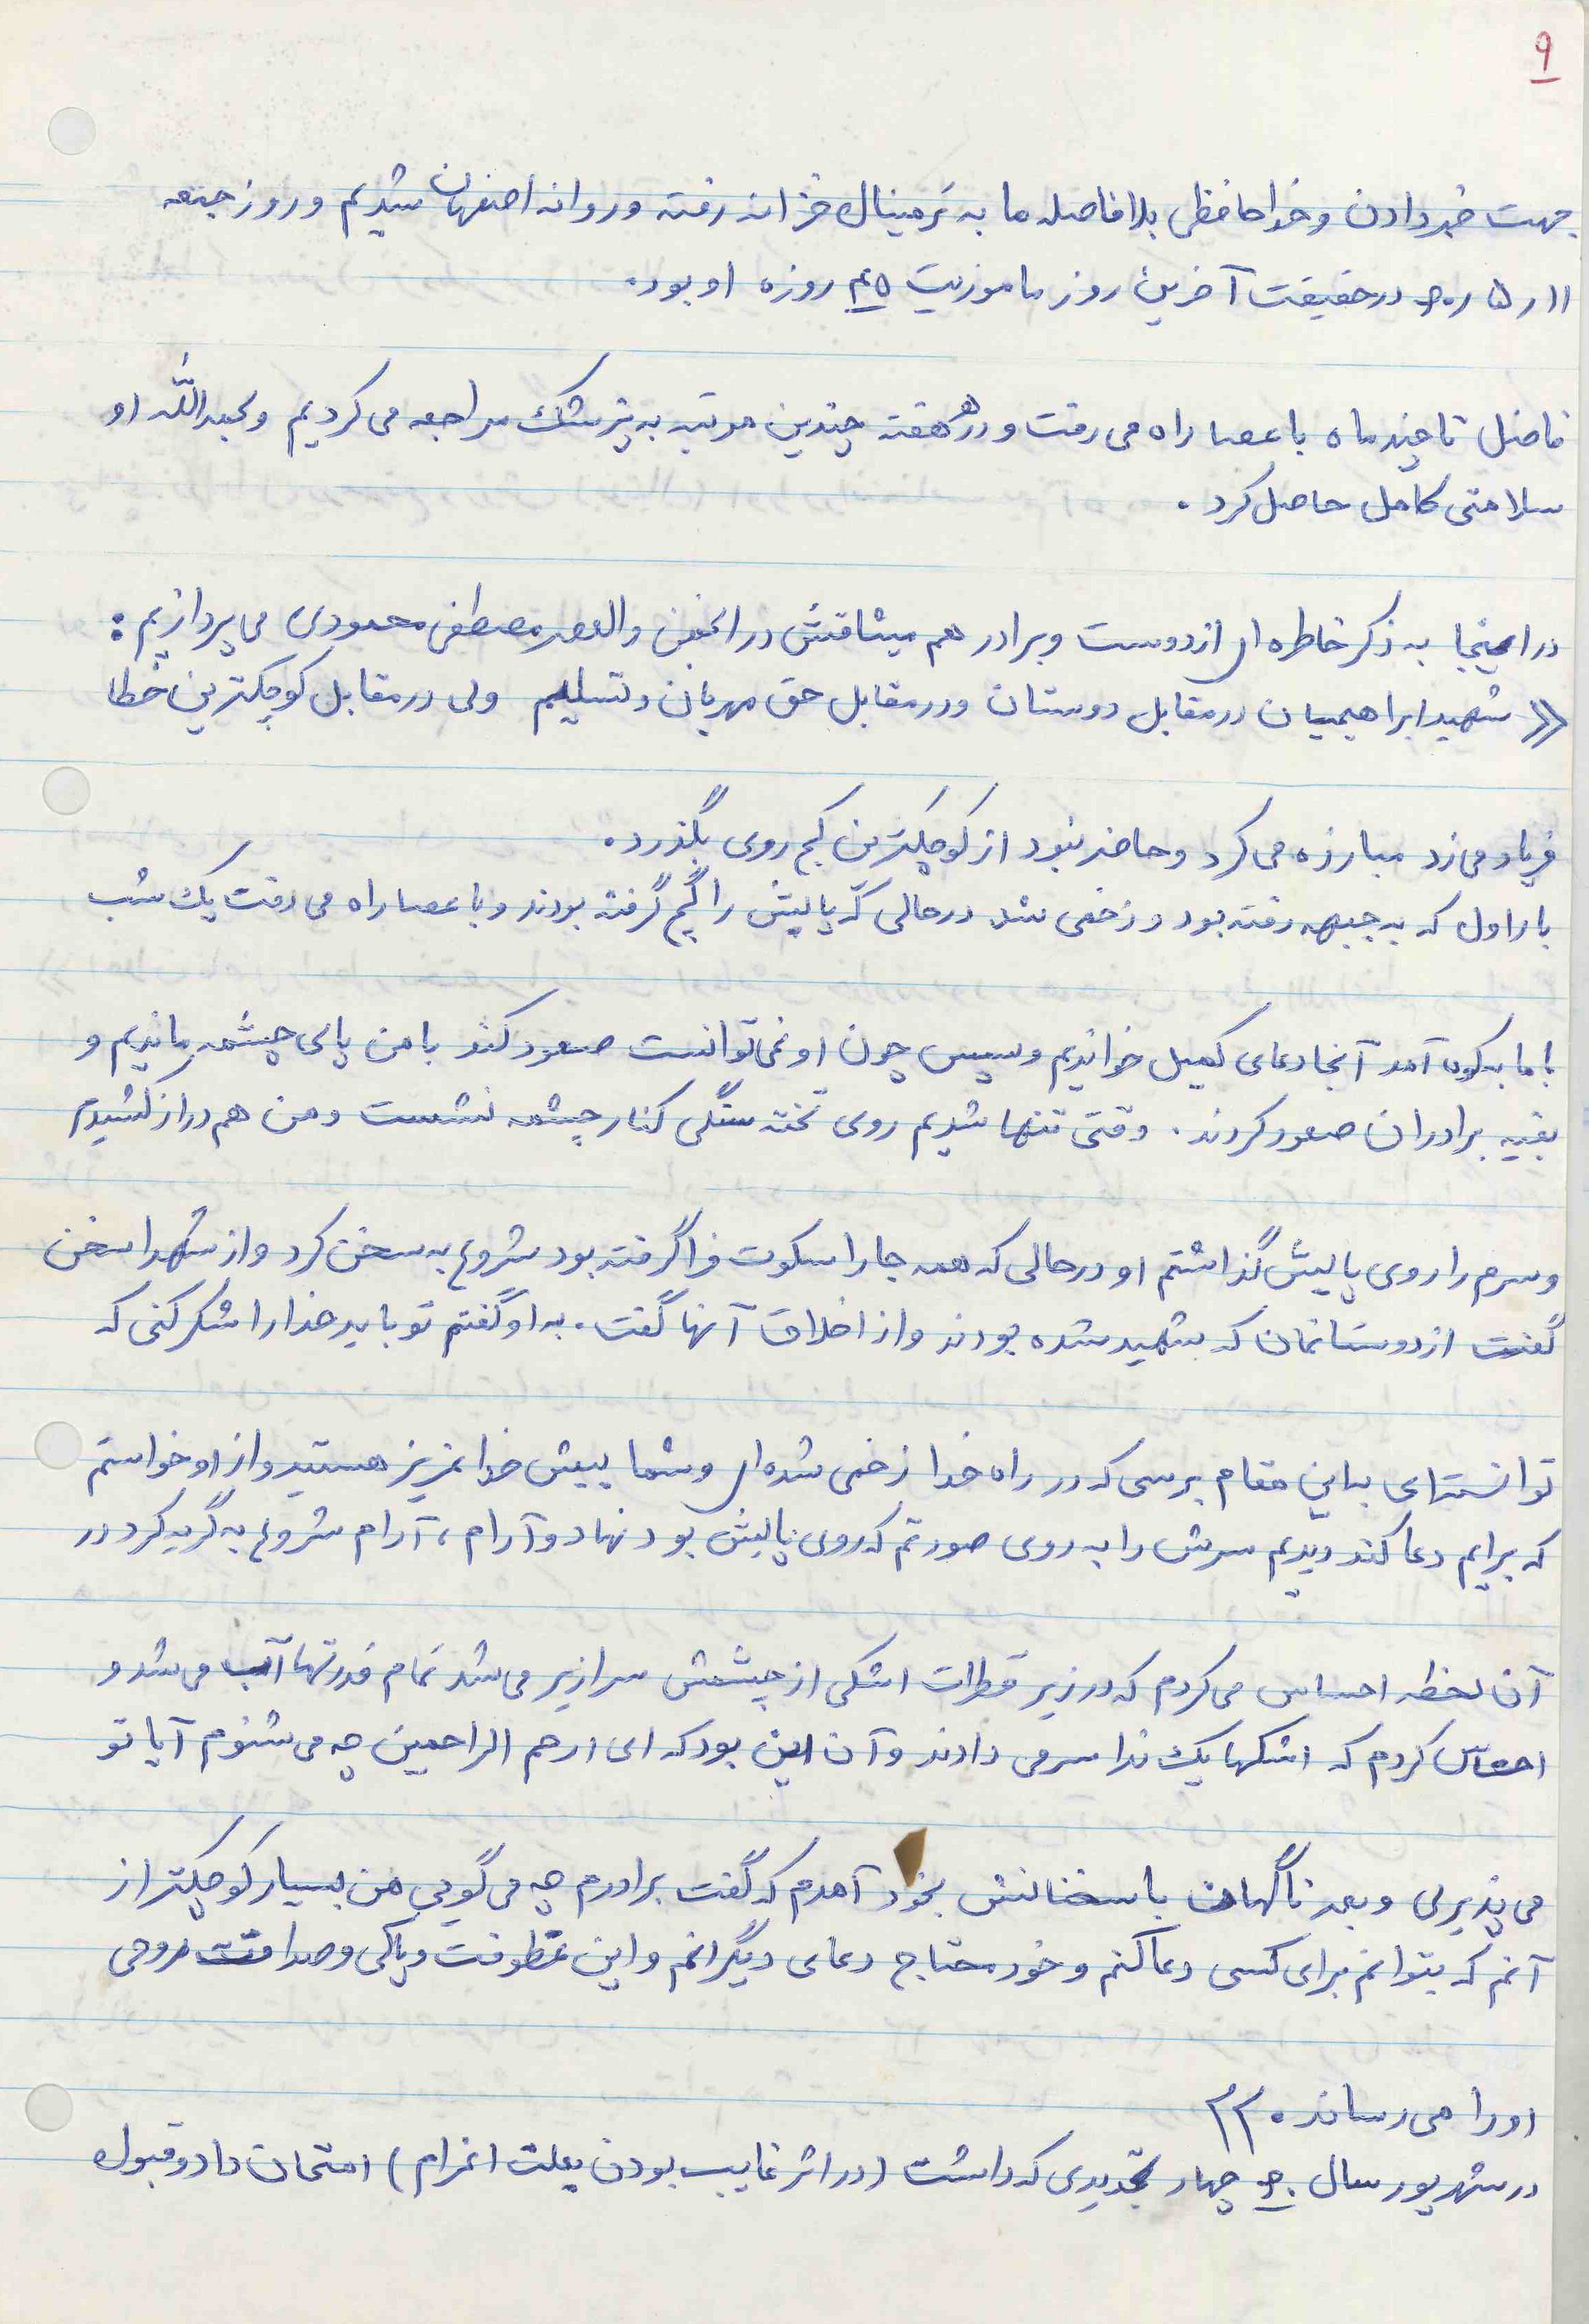 ۹
جهت خبر دادن و خداحافظی بلافاصله ما به ترمینال خزانه رفته و روانه اصفهان شدیم و روز جمعه
۱۱ ر ۵ ر ۶۰ درحقیقت آخرین روز ماموریت ۴۵ روزه او بود.
فاضل تا چند ماه با عصا راه می رفت و در هر هفته چندین مرتبه به پزشک مراجعه می کردیم و بحمدالله او
سلامتی کامل حاصل کرد.
در اینجا به ذکر خاطره ای از دوست و برادر هم میثاقش در انجمن والعصر مصطفی محمودی می پردازیم :
« شهید ابراهیمیان در مقابل دوستان و در مقابل حق مهربان و تسلیم ولی در مقابل کوچکترین خطا
فریاد می زد مبارزه می کرد و حاضر نبود از کوچکترین کج روی بگذرد.
بار اول که به جبهه رفته بود و زخمی شد درحالی که پایش را گچ گرفته بودند و با عصا راه می رفت یک شب
با ما به کوه آمد آنجا دعای کمیل خواندیم و سپس چون او نمی توانست صعود کند با من پای چشمه ماندیم و
بقیه برادران صعود کردند. وقتی تنها شدیم روی تخته سنگی کنار چشمه نشست و من هم دراز کشیدم
و سرم را روی پایش گذاشتم او در حالی که همه جا را سکوت فرا گرفته بود شروع به سخن کرد و از شهدا سخن
گفت از دوستانمان که شهید شده بودند و از اخلاق آنها گفت. به او گفتم تو باید خدا را شکر کنی که
توانسته ای به این مقام برسی که در راه خدا زخمی شده ای و شما پیش خدا عزیز هستید و از او خواستم
که برایم دعا کند دیدم سرش را به روی صورتم که روی پایش بود نهاد و آرام ، آرام شروع به گریه کرد در
آن لحظه احساس می کردم که در زیر قطرات اشکی از چشمش سرازیر می شد تمام قدرتها آب می شد و
احساس کردم که اشکها یک ندا سر می دادند و آن این بود که ای ارحم الراحمین چه می شنوم آیا تو
می پذیری و بعد ناگهان با سخنانش بخود آمدم که گفت برادرم چه می گویی من بسیار کوچکتر از
آنم که بتوانم برای کسی دعا کنم و خود محتاج دعای دیگرانم و این عطوفت و پاکی و صداقت روحی
او را می رساند. »
در شهریور سال ۶۰ چهار تجدیدی که داشت (در اثر غایب بودن بعلت اعزام) امتحان داد و قبول